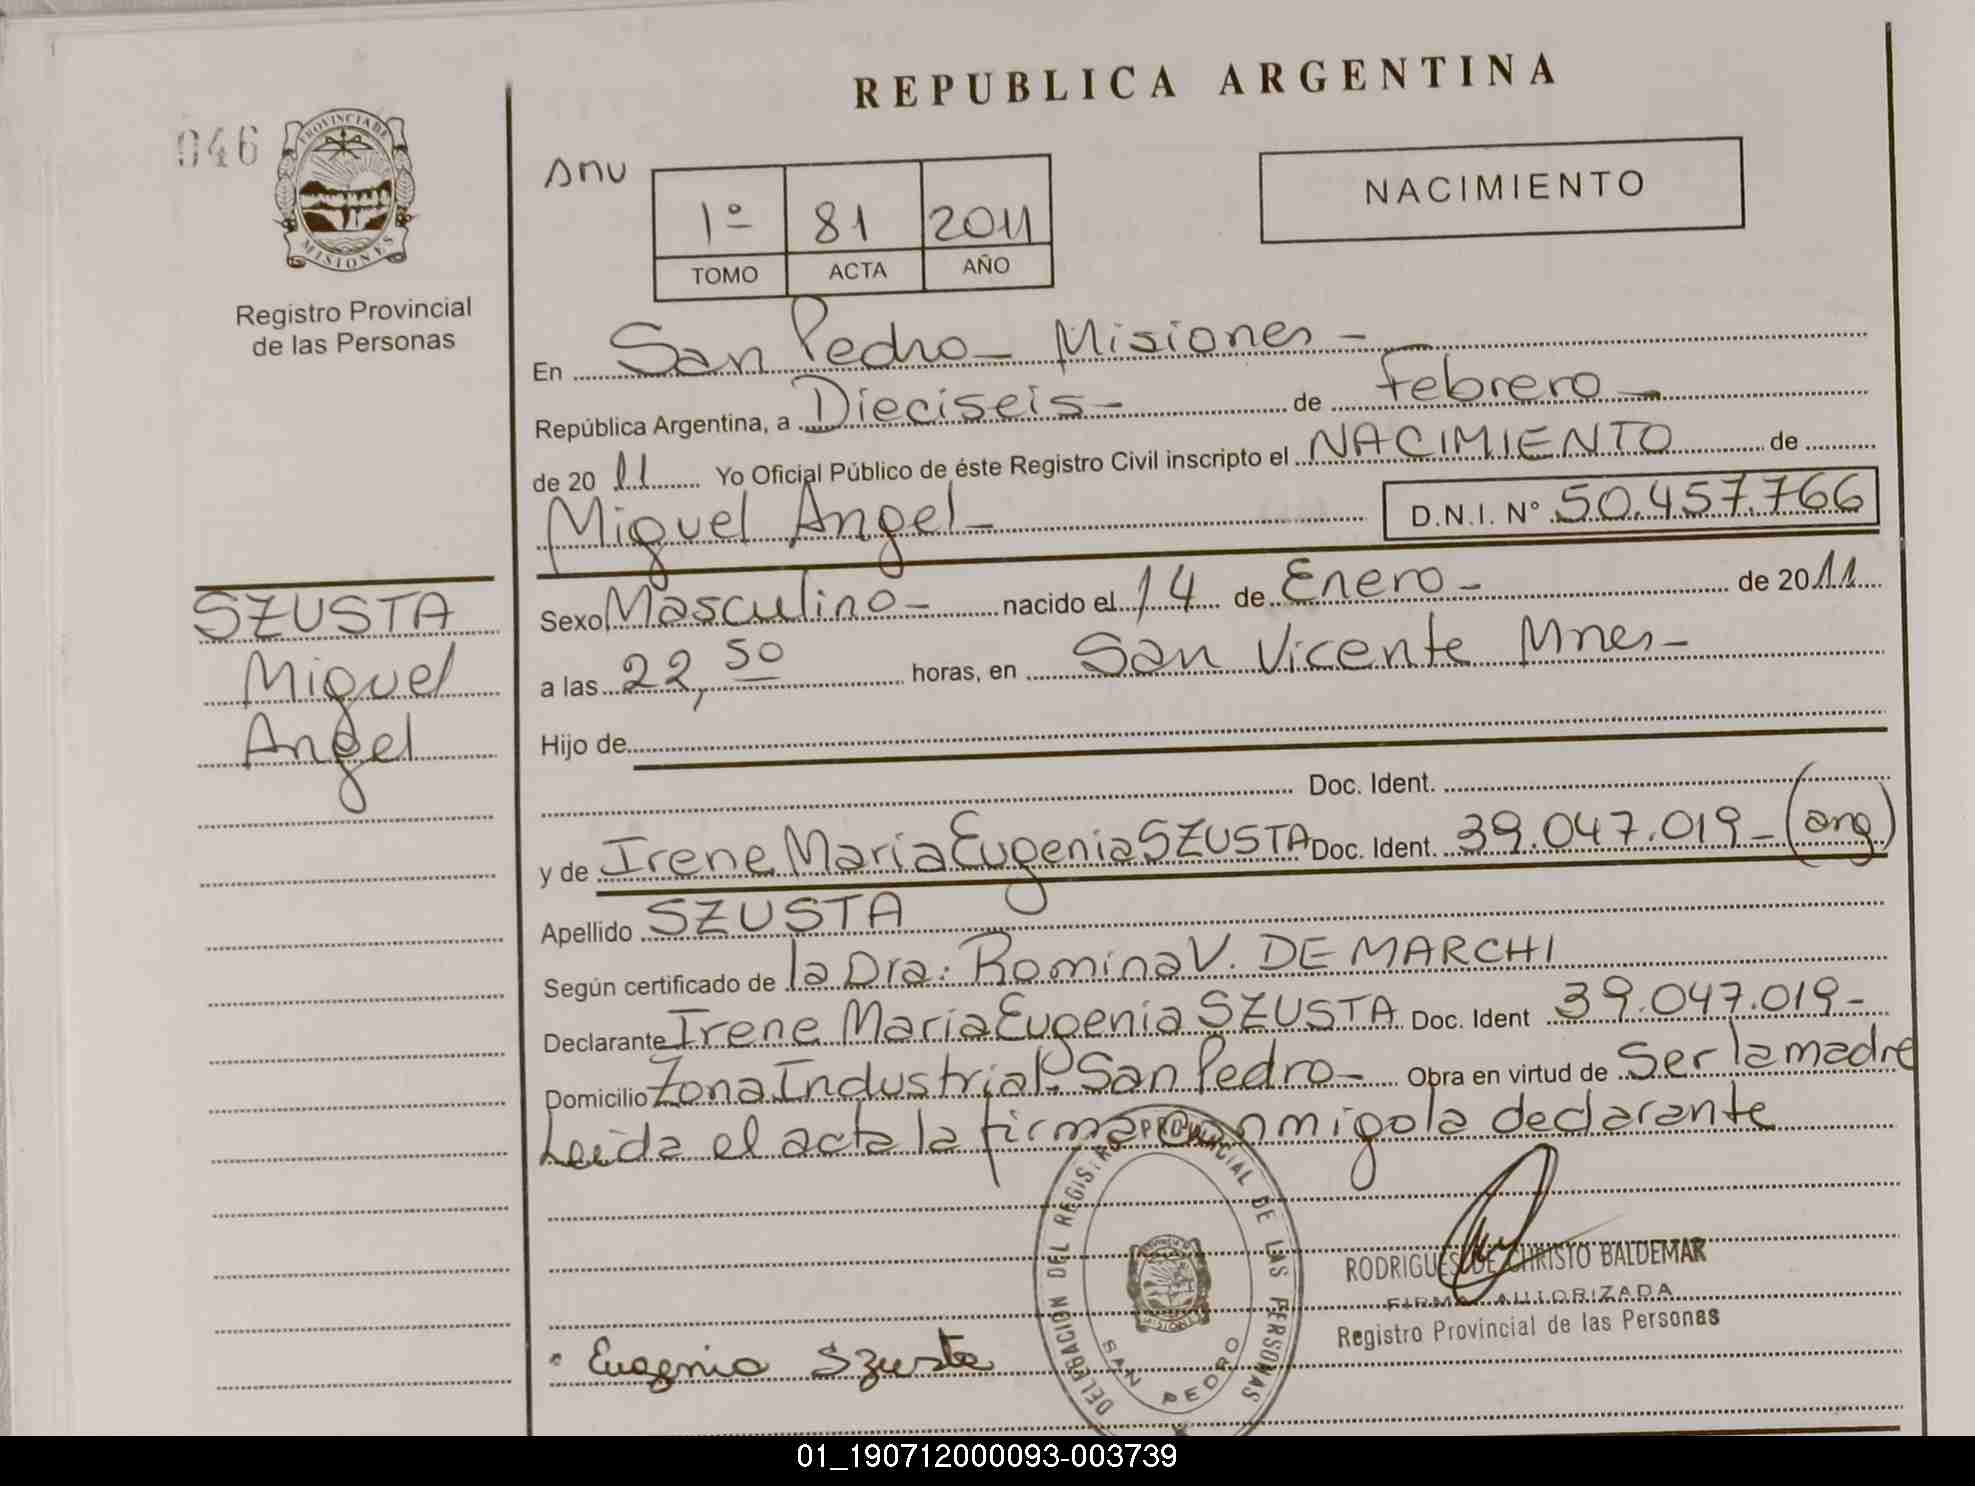 REPUBLICA ARGENTINA
046
PROVINCIA DE
MISIONES
Registro Provincial
de las Personas
Anu
1º 81 2011
TOMO ACTA AÑO
NACIMIENTO
En San Pedro - Misiones -
República Argentina, a Dieciseis - de Febrero -
de 20 11 Yo Oficial Público de éste Registro Civil inscripto el NACIMIENTO de
Miguel Angel - D.N.I. Nº 50.457.766
SZUSTA
Miguel
Angel
Sexo Masculino - nacido el 14 de Enero - de 20 11
a las 22, 50 horas, en San Vicente Mnes -
Hijo de
Doc. Ident.
y de Irene Maria Eugenia SZUSTA Doc. Ident. 39.047.019 - (arg)
Apellido SZUSTA
Según certificado de la Dra. Romina V. DE MARCHI
Declarante Irene Maria Eugenia SZUSTA Doc. Ident 39.047.019 -
Domicilio Zona Industrial San Pedro - Obra en virtud de Ser la madre
Leida el acta la firma conmigo la declarante
DELEGACION DEL REGISTRO PROVINCIAL DE LAS PERSONAS
SAN PEDRO
MISIONES
RODRIGUES DE CHRISTO BALDEMAR
FIRMA AUTORIZADA
Registro Provincial de las Personas
Eugenia Szusta
01_190712000093-003739